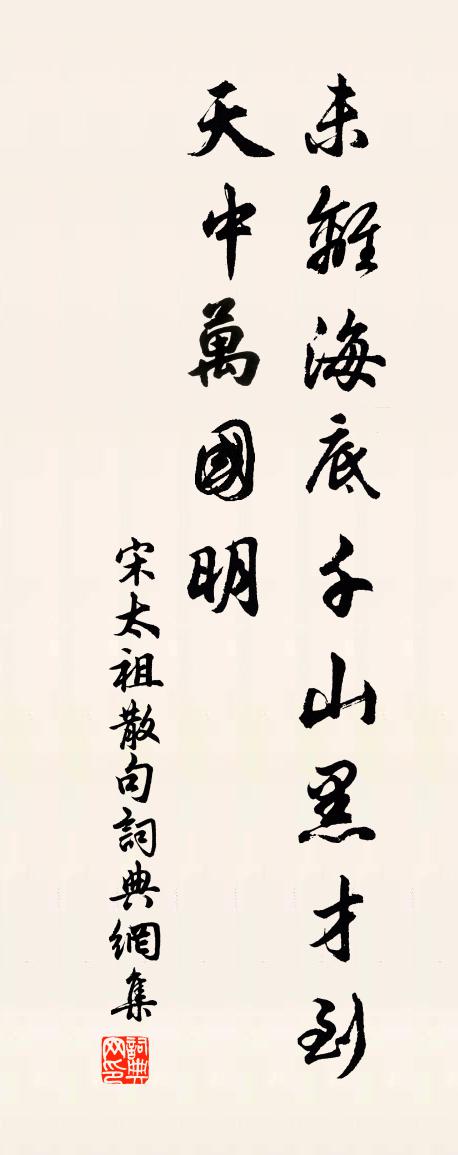 未離海底千山黑才到
天中萬國明
宋太祖散句詞典網集
詞典网印